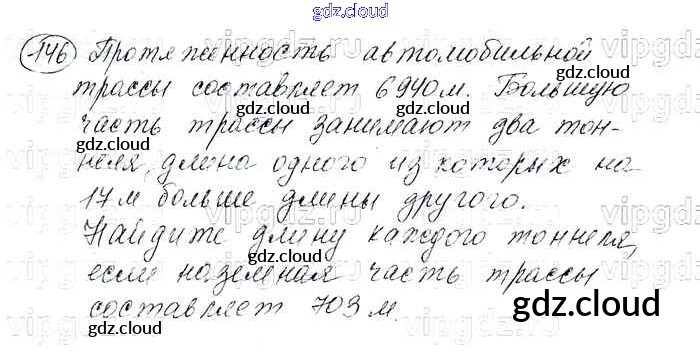 gdz.cloud
146 Протяженность автомобильной
трассы составляет 6940 м. Большую
часть трассы занимают два тон-
неля, длина одного из которых на
17 м больше длины другого.
Найдите длину каждого тоннеля,
если наземная часть трассы
составляет 703 м.
gdz.cloud
gdz.cloud
gdz.cloud
gdz.cloud
gdz.cloud
gdz.cloud
gdz.cloud
gdz.cloud